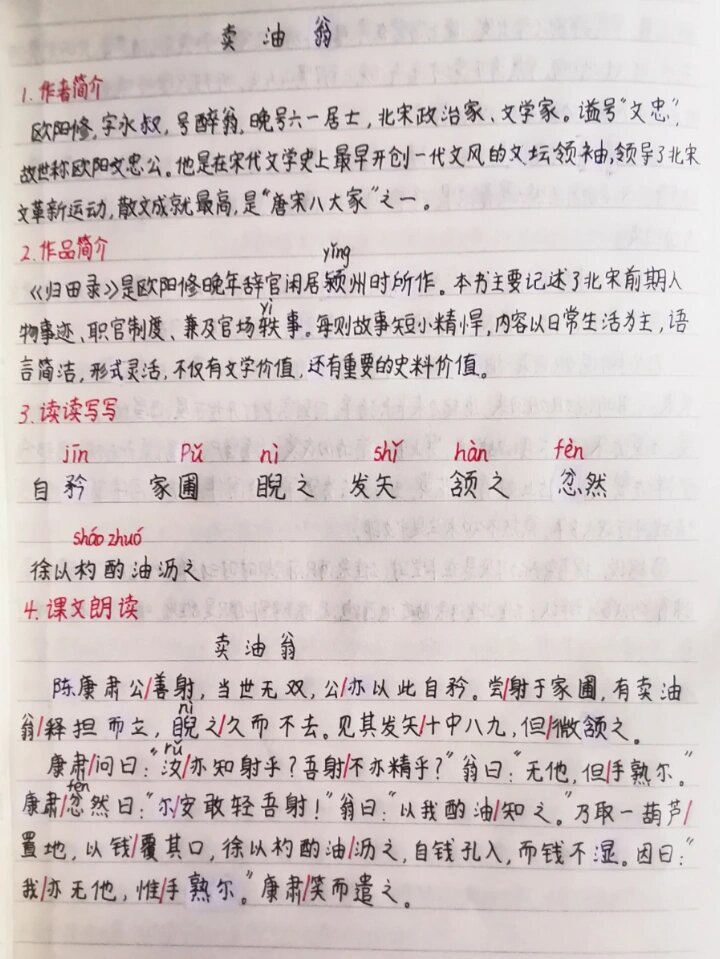 卖油翁
1.作者简介
欧阳修,字永叔,号醉翁,晚号六一居士,北宋政治家、文学家。谥号"文忠",
故世称欧阳文忠公。他是在宋代文学史上最早开创一代文风的文坛领袖,领导了北宋
文革新运动,散文成就最高,是"唐宋八大家"之一。
2.作品简介
yǐng
《归田录》是欧阳修晚年辞官闲居颍州时所作。本书主要记述了北宋前期人
yì
物事迹、职官制度、兼及官场轶事。每则故事短小精悍,内容以日常生活为主,语
言简洁,形式灵活,不仅有文学价值,还有重要的史料价值。
3.读读写写
jīn pǔ nì shǐ hàn fèn
自矜 家圃 睨之 发矢 颔之 忿然
sháo zhuó
徐以杓酌油沥之
4.课文朗读
卖油翁
陈康肃公/善射,当世无双,公/亦以此自矜。尝/射于家圃,有卖油
nì
翁/释担而立,睨之/久而不去。见其发矢/十中八九,但/微颔之。
rǔ
康肃/问曰:"汝/亦知射乎?吾射/不亦精乎?"翁曰:"无他,但/手熟尔。"
fèn
康肃/忿然曰:"尔/安敢轻吾射!"翁曰:"以我酌油/知之。"乃取一葫芦/
置地,以钱/覆其口,徐以杓酌油/沥之,自钱孔入,而钱不湿。因曰:"
我/亦无他,惟/手熟尔。"康肃/笑而遣之。